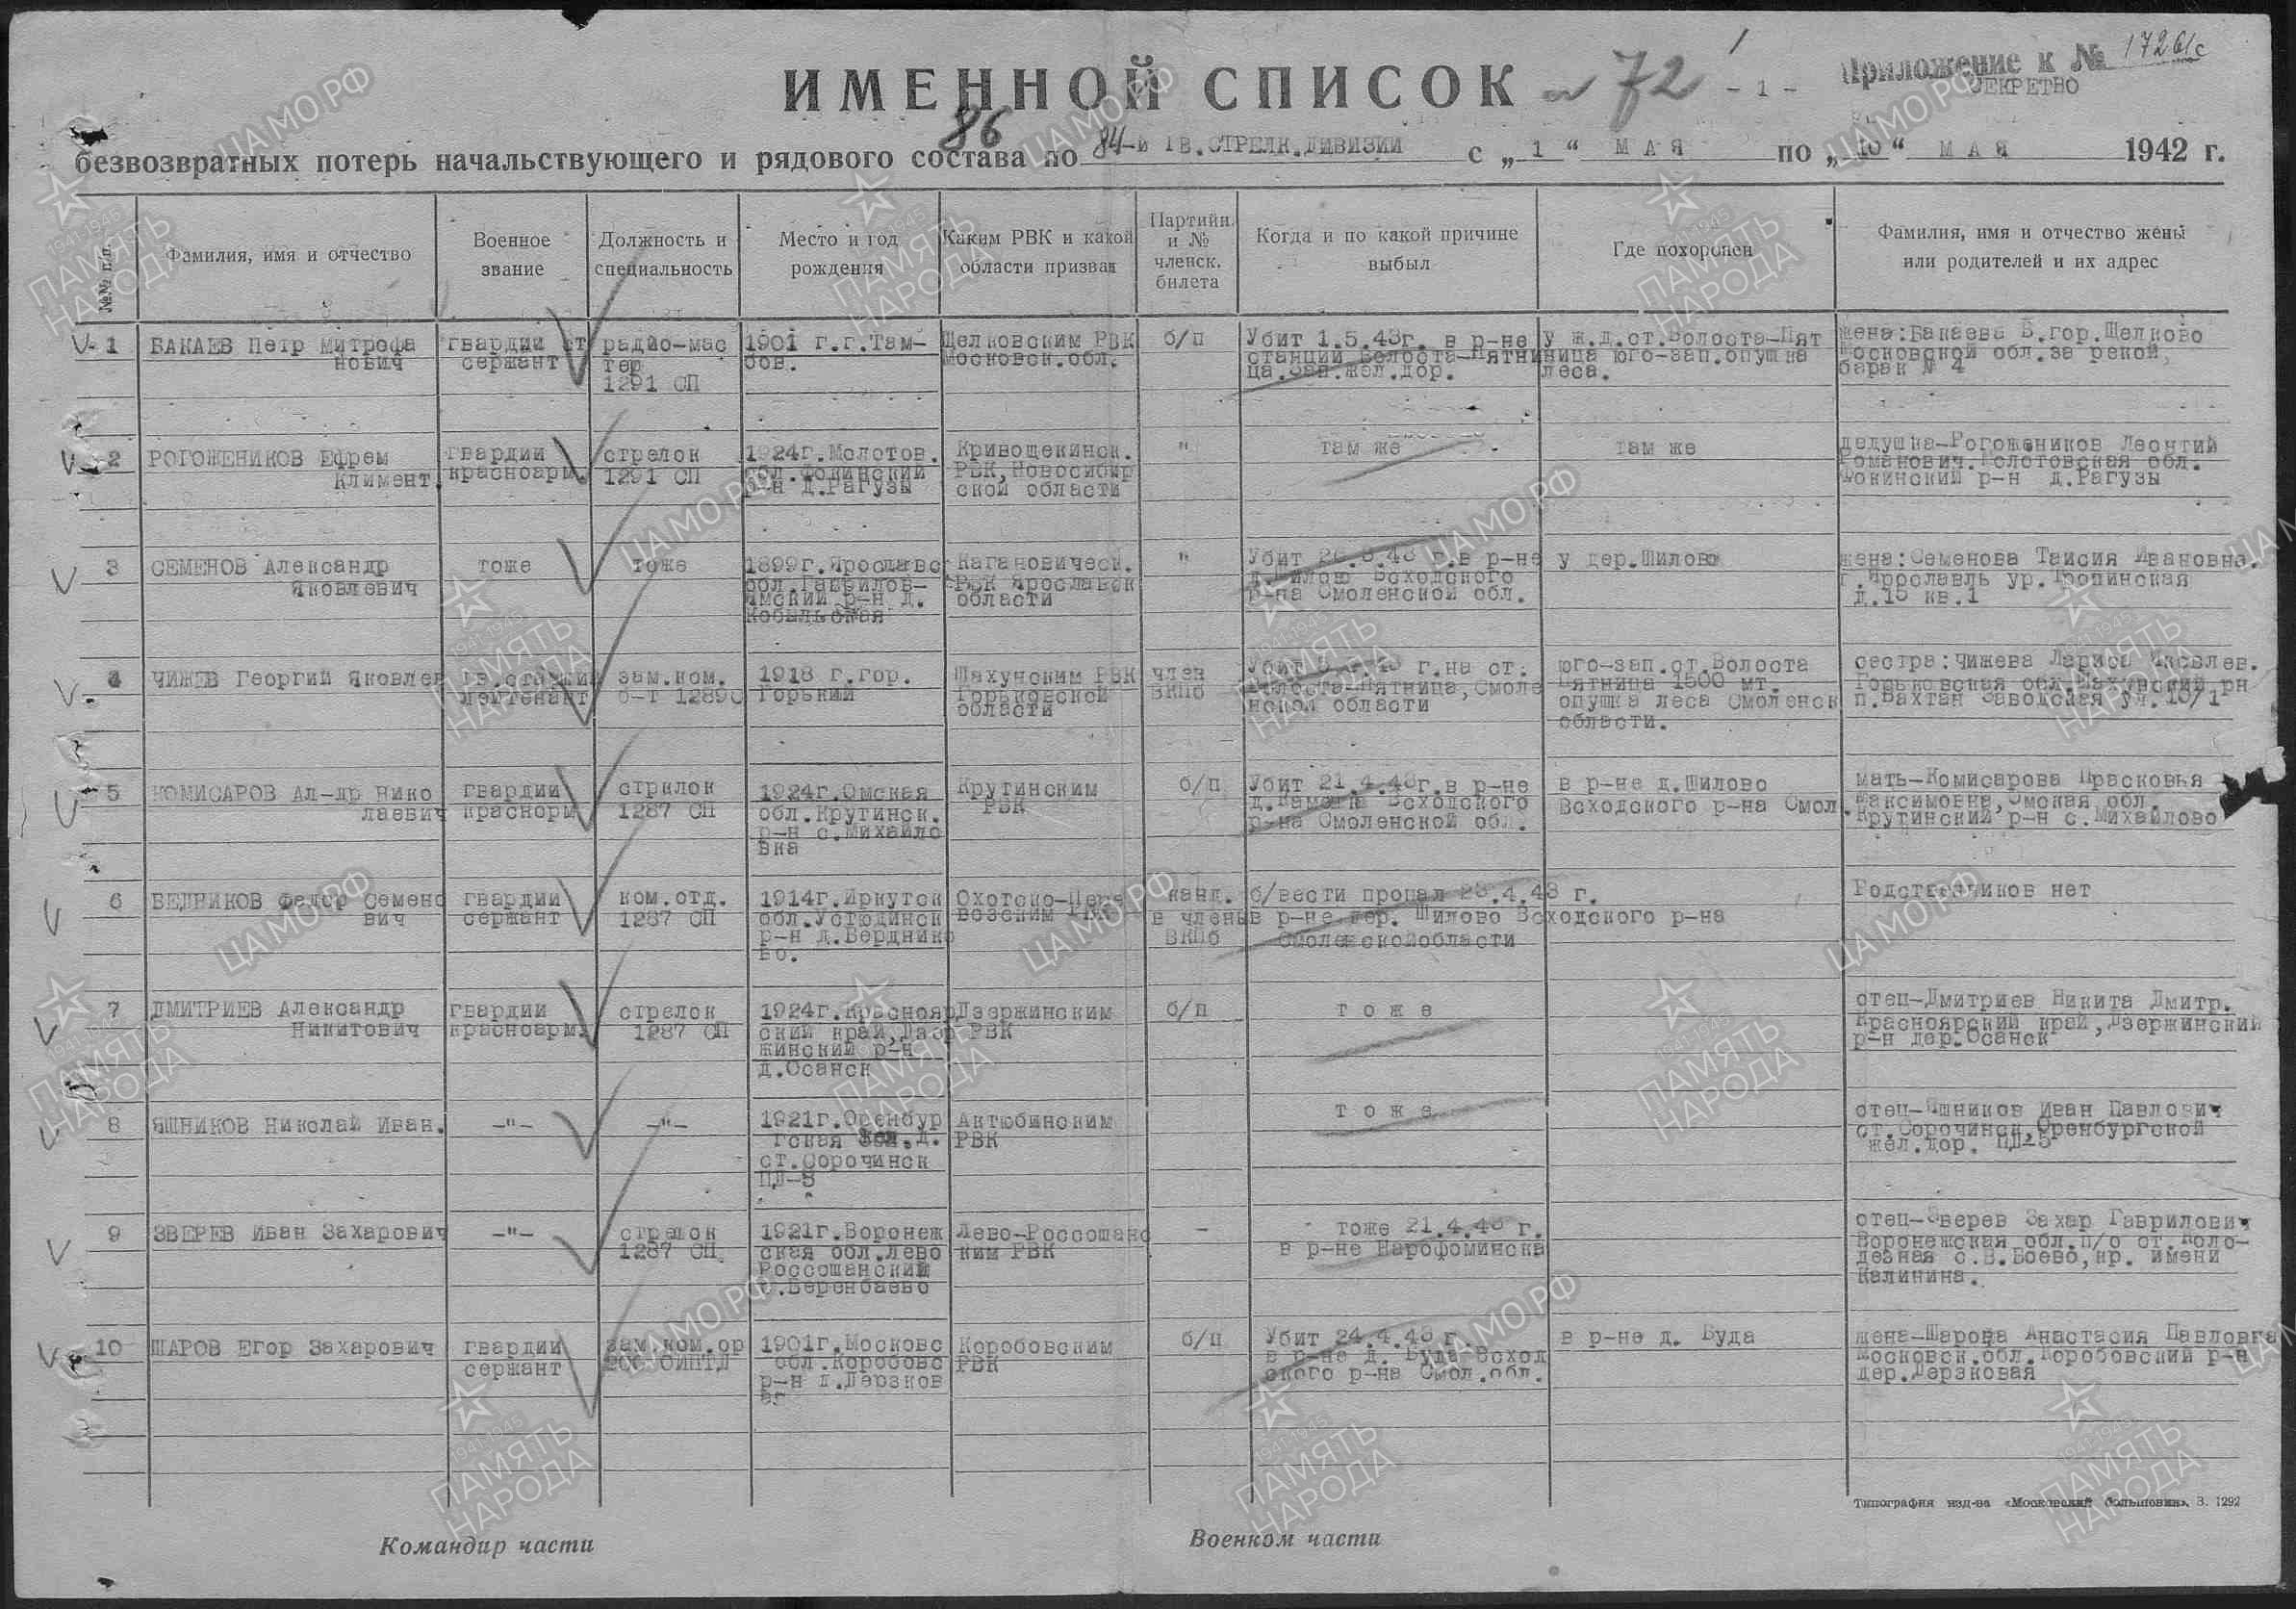 Приложение к № 17261с
ИМЕННОЙ СПИСОК № 72 - 1 -
СЕКРЕТНО
86
безвозвратных потерь начальствующего и рядового состава по 84-й ГВ.СТРЕЛК.ДИВИЗИИ с „ 1 “ МАЯ по „ 10 “ МАЯ 1942 г.
№№ п/п.
Фамилия, имя и отчество
Военное
звание
Должность и
специальность
Место и год
рождения
Каким РВК и какой
области призван
Партийн.
и №
членск.
билета
Когда и по какой причине
выбыл
Где похоронен
Фамилия, имя и отчество жены
или родителей и их адрес
1
БАКАЕВ Петр Митрофа
нович
гвардии ст
сержант
радио-мас
тер
1291 СП
1901 г.г.Там-
бов.
Щелковским РВК
Московск.обл.
б/п
Убит 1.5.43г. в р-не
станции Волоста-Пятни
ца.Зап.жел.дор.
у ж.д.ст.Волоста-Пят
ница юго-зап.опушка
леса.
жена:Бакаева В.гор.Щелково
Московской обл.за рекой,
барак № 4
2
РОГОЖЕНИКОВ Ефрем
Климент.
гвардии
красноарм.
стрелок
1291 СП
1924г.Молотов.
обл.Фокинский
р-н д.Рагузы
Кривощекинск.
РВК,Новосибир
ской области
"
там же
там же
дедушка-Рогожеников Леонтий
Романович.Молотовская обл.
Фокинский р-н д.Рагузы
3
СЕМЕНОВ Александр
Яковлевич
тоже
тоже
1899г.Ярославс
обл.Гаврилов-
Ямский р-н д.
Кобыльская
Кагановическ.
РВК Ярославск
области
"
Убит г.в р-не
д.Шилово Всходского
р-на Смоленской обл.
у дер.Шилово
жена:Семенова Таисия Ивановна.
г.Ярославль ур.Тропинская
д.15 кв.1
4
ЧИЖЕВ Георгий Яковлев
гв.старший
лейтенант
зам.ком.
б-т 1289С
1918 г.гор.
Горький
Шахунским РВК
Горьковской
области
член
ВКПб
Убит г.на ст.
Волоста-Пятница,Смоле
нской области
юго-зап.ст.Волоста
Пятница 1500 мт.
опушка леса Смоленск
области.
сестра:Чижева Лариса Яковлев.
Горьковская обл.Шахунский рн
п.Вахтан Заводская ул.13/1
5
КОМИСАРОВ Ал-др Нико
лаевич
гвардии
краснорм
стрилок
1287 СП
1924г.Омская
обл.Крутинск.
р-н с.Михайло
вка
Крутинским
РВК
б/п
Убит 21.4.43г.в р-не
д.Каменка Всходского
р-на Смоленской обл.
в р-не д.Шилово
Всходского р-на Смол.
мать-Комисарова Прасковья
Максимовна,Омская обл.
Крутинский р-н с.Михайлово
6
БЕДНИКОВ Федор Семено
вич
гвардии
сержант
ком.отд.
1287 СП
1914г.Иркутск
обл.Устюдинск
р-н д.Берднико
во.
Охотско-Пере
возским РВК
канд.
в члены
ВКПб
б/вести пропал 23.4.43 г.
в р-не дер. Шилово Всходского р-на
Смоленскойобласти
Родственников нет
7
ДМИТРИЕВ Александр
Никитович
гвардии
красноарм.
стрелок
1287 СП
1924г.Краснояр
ский край,Дзер
жинский р-н
д.Осанск
Дзержинским
РВК
б/п
т о ж е
отец-Дмитриев Никита Дмитр.
Красноярский край,Дзержинский
р-н дер.Осанск
8
ЯШНИКОВ Николай Иван.
-"-
-"-
1921г.Оренбур
гская жел.д.
ст.Сорочинск
ПД-5
Актюбинским
РВК
т о ж е
отец-Яшников Иван Павлович
ст.Сорочинск,Оренбургской
жел.дор. ПД-5
9
ЗВЕРЕВ Иван Захарович
-"-
стрелок
1287 СП
1921г.Воронеж
ская обл.Лево
Россошанский
с.Беренбаево
Лево-Россошанс
ким РВК
-
тоже 21.4.43 г.
в р-не Нарофоминска
отец-Зверев Захар Гаврилович
Воронежская обл.п/о ст.Коло-
дезная с.В.Боево,кр. имени
Калинина.
10
ШАРОВ Егор Захарович
гвардии
сержант
зам.ком.ор
ОИПТД
1901г.Московс
обл.Коробовс
р-н д.Дерзков
ая
Коробовским
РВК
б/п
Убит 24.4.43 г.
в р-не д. Буда Всход
ского р-на Смол.обл.
в р-не д. Буда
жена-Шарова Анастасия Павловна
Московск.обл.Коробовский р-н
дер.Дерзковая
Типография изд-ва «Московский большевик». З. 1292
Командир части
Военком части